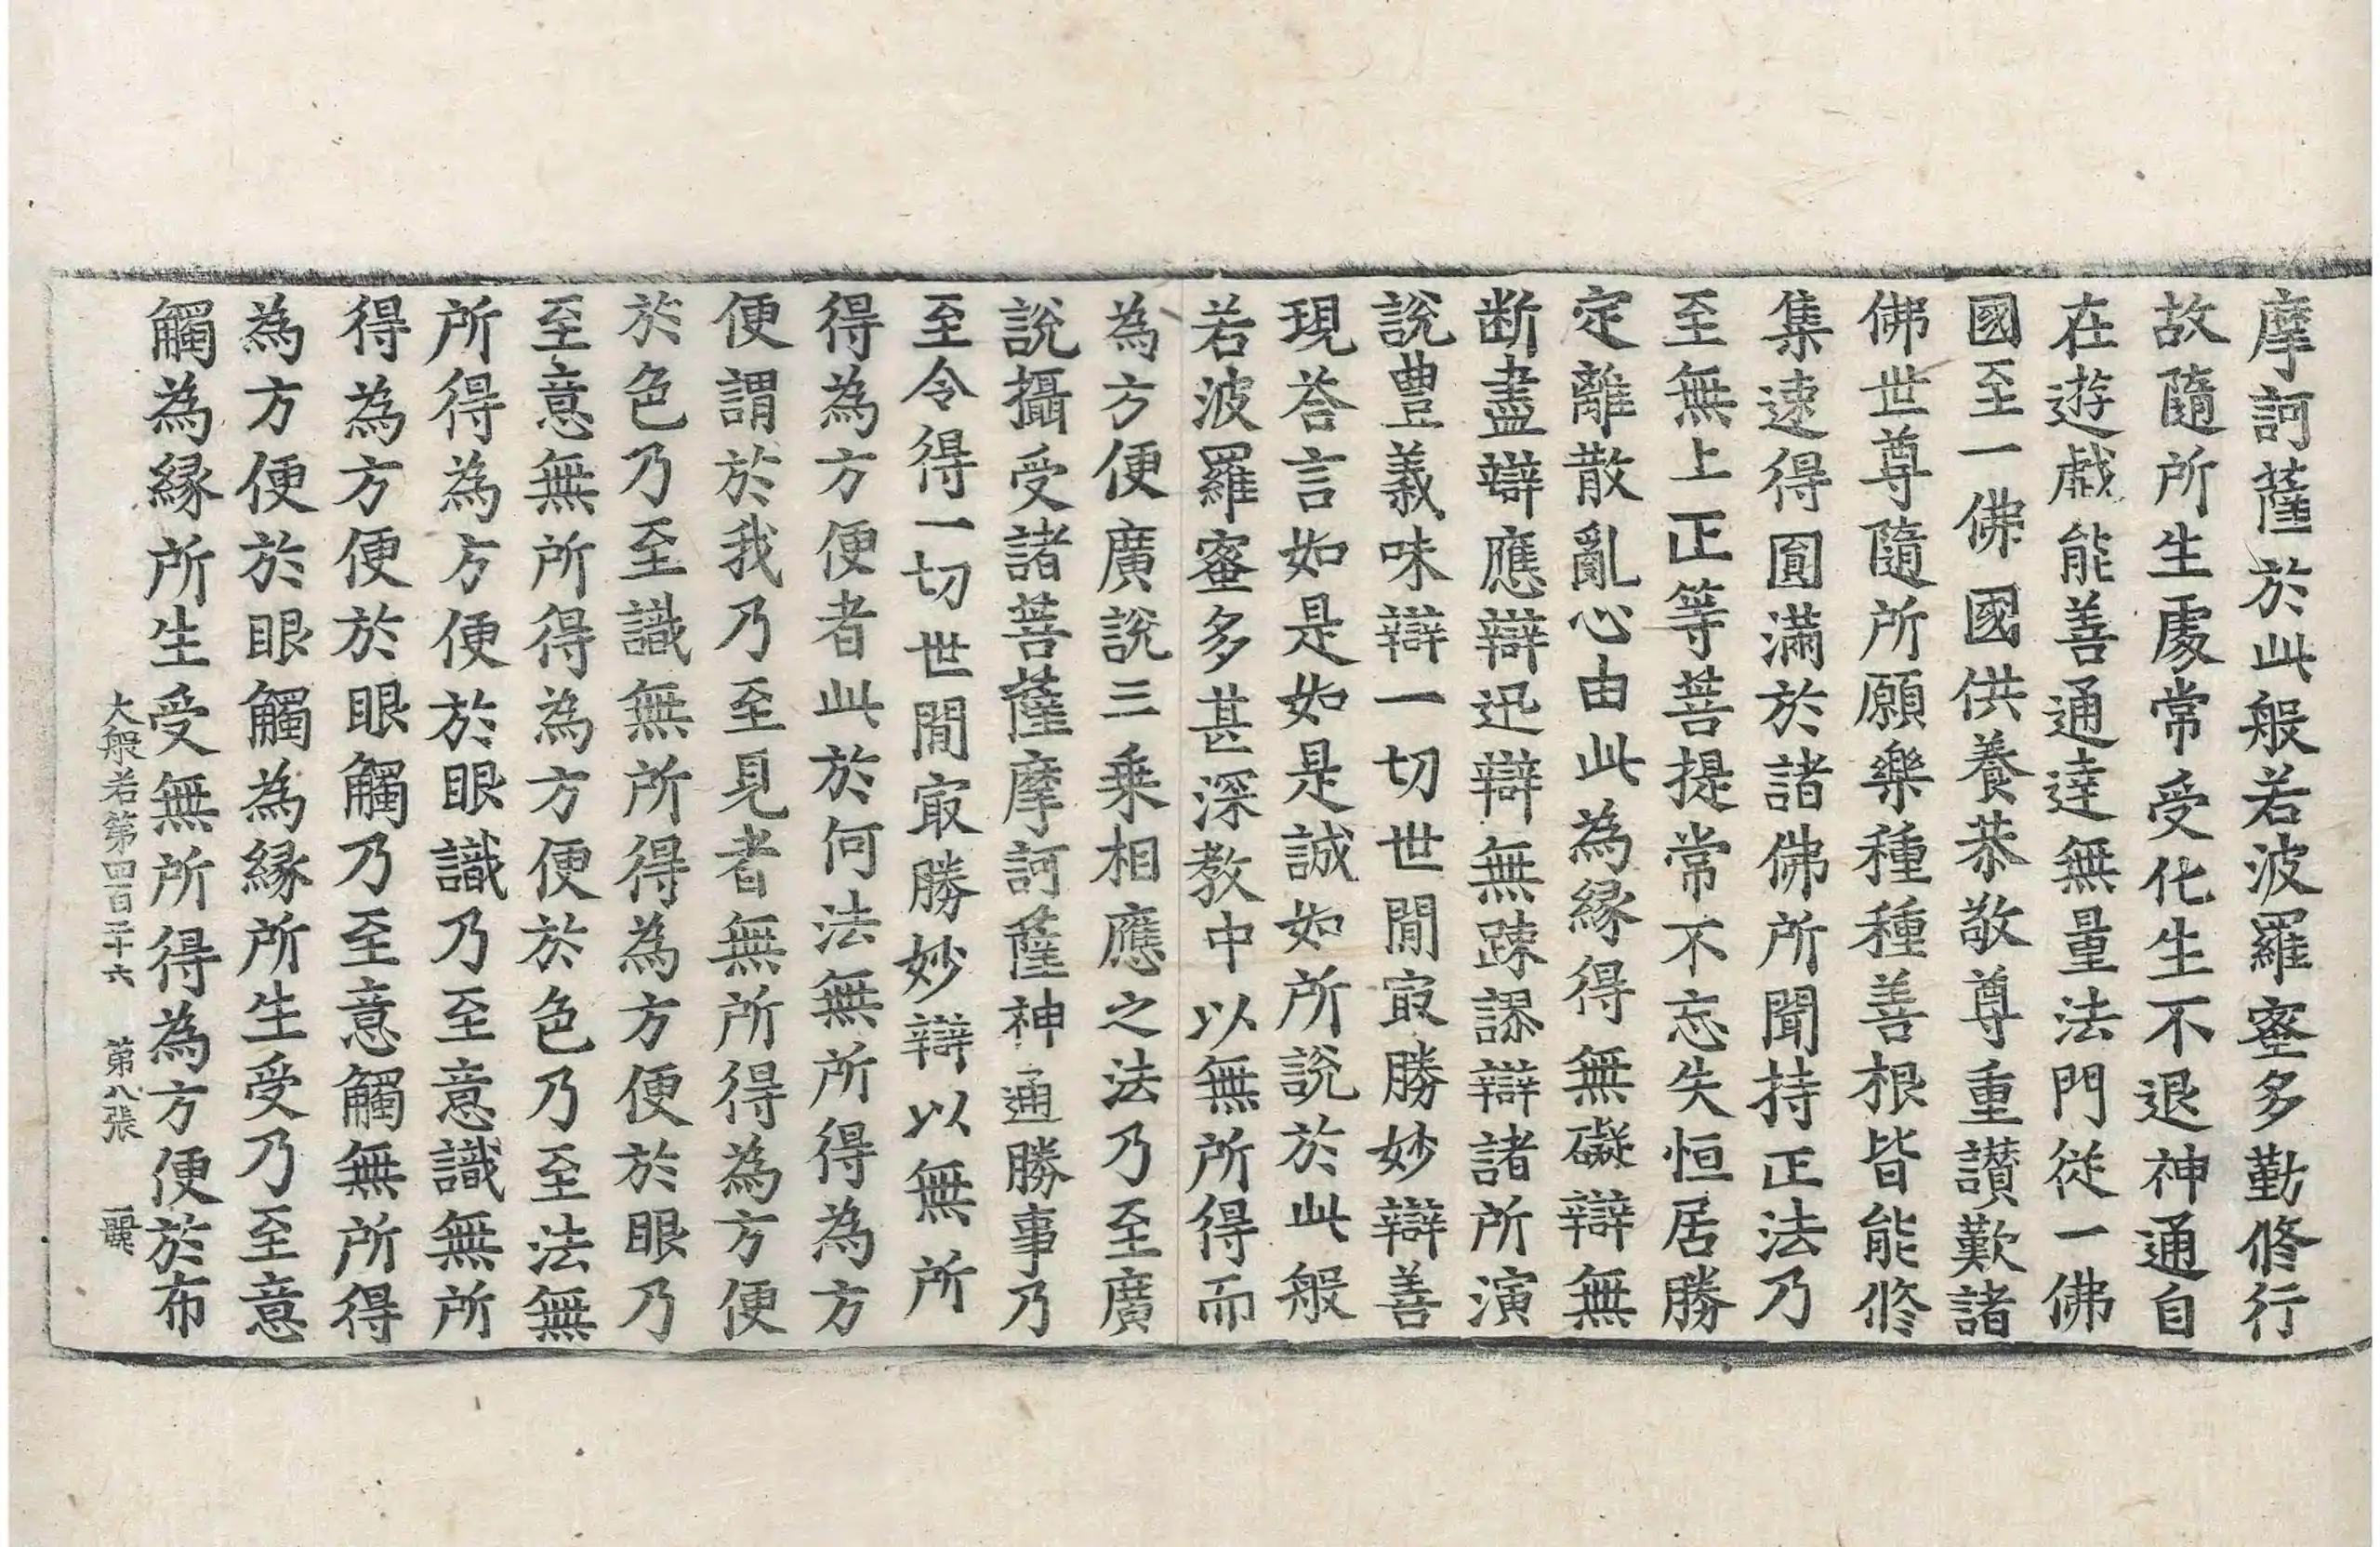 摩訶薩於此般若波羅蜜多勤修行
故隨所生處常受化生不退神通自
在遊戲能善通達無量法門從一佛
國至一佛國供養恭敬尊重讃歎諸
佛世尊隨所願樂種種善根皆能修
集速得圓滿於諸佛所聞持正法乃
至無上正等菩提常不忘失恒居勝
定離散亂心由此為緣得無礙辯無
断盡辯應辯迅辯無踈謬辯諸所演
說豊義味辯一切世閒㝡勝妙辯善
現荅言如是如是誠如所說於此般
若波羅蜜多甚深教中以無所得而
為方便廣說三乗相應之法乃至廣
說攝受諸菩薩摩訶薩神通勝事乃
至令得一切世閒㝡勝妙辯以無所
得為方便者此於何法無所得為方
便謂於我乃至見者無所得為方便
於色乃至識無所得為方便於眼乃
至意無所得為方便於色乃至法無
所得為方便於眼識乃至意識無所
得為方便於眼觸乃至意觸無所得
為方便於眼觸為緣所生受乃至意
觸為緣所生受無所得為方便於布
大般若第四百二十六 第八張